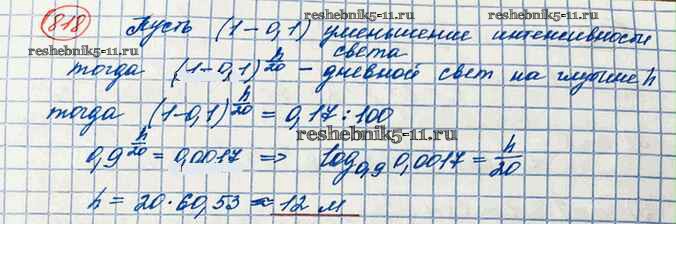 818 Пусть (1-0,1) уменьшение интенсивности
света
тогда (1-0,1)^{h/20} - дневной свет на глубине h
тогда (1-0,1)^{h/20} = 0,17 : 100
0,9^{h/20} = 0,0017 => log_{0,9} 0,0017 = h/20
h = 20·60,53 ≈ 12 м
reshebnik5-11.ru
reshebnik5-11.ru
reshebnik5-11.ru
reshebnik5-11.ru
reshebnik5-11.ru
reshebnik5-11.ru